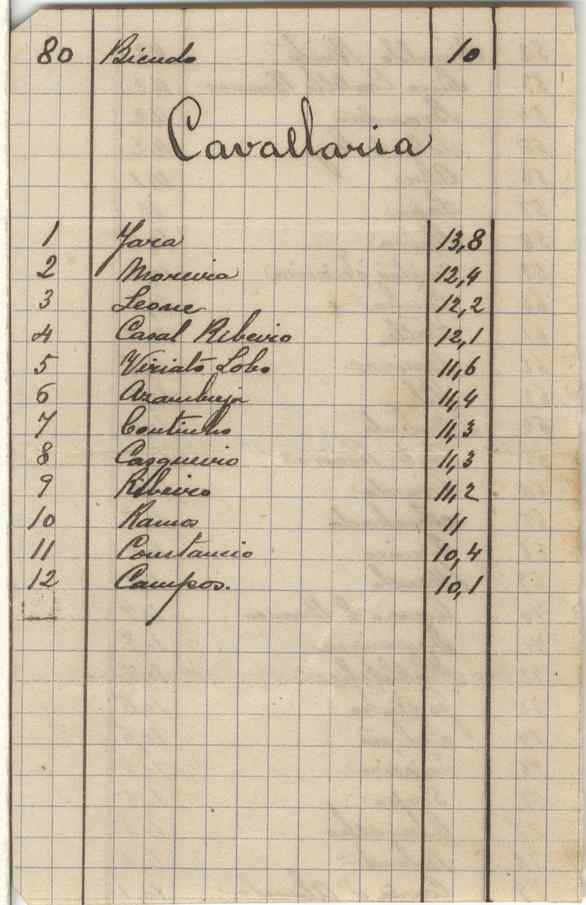 80 Biendo 10
Cavallaria
1 Yara 13,8
2 Moreira 12,4
3 Leone 12,2
4 Casal Ribeiro 12,1
5 Viriato Lobo 11,6
6 Azambuja 11,4
7 Coutinho 11,3
8 Casqueiro 11,3
9 Ribeiro 11,2
10 Ramos 11
11 Constancio 10,4
12 Campos. 10,1